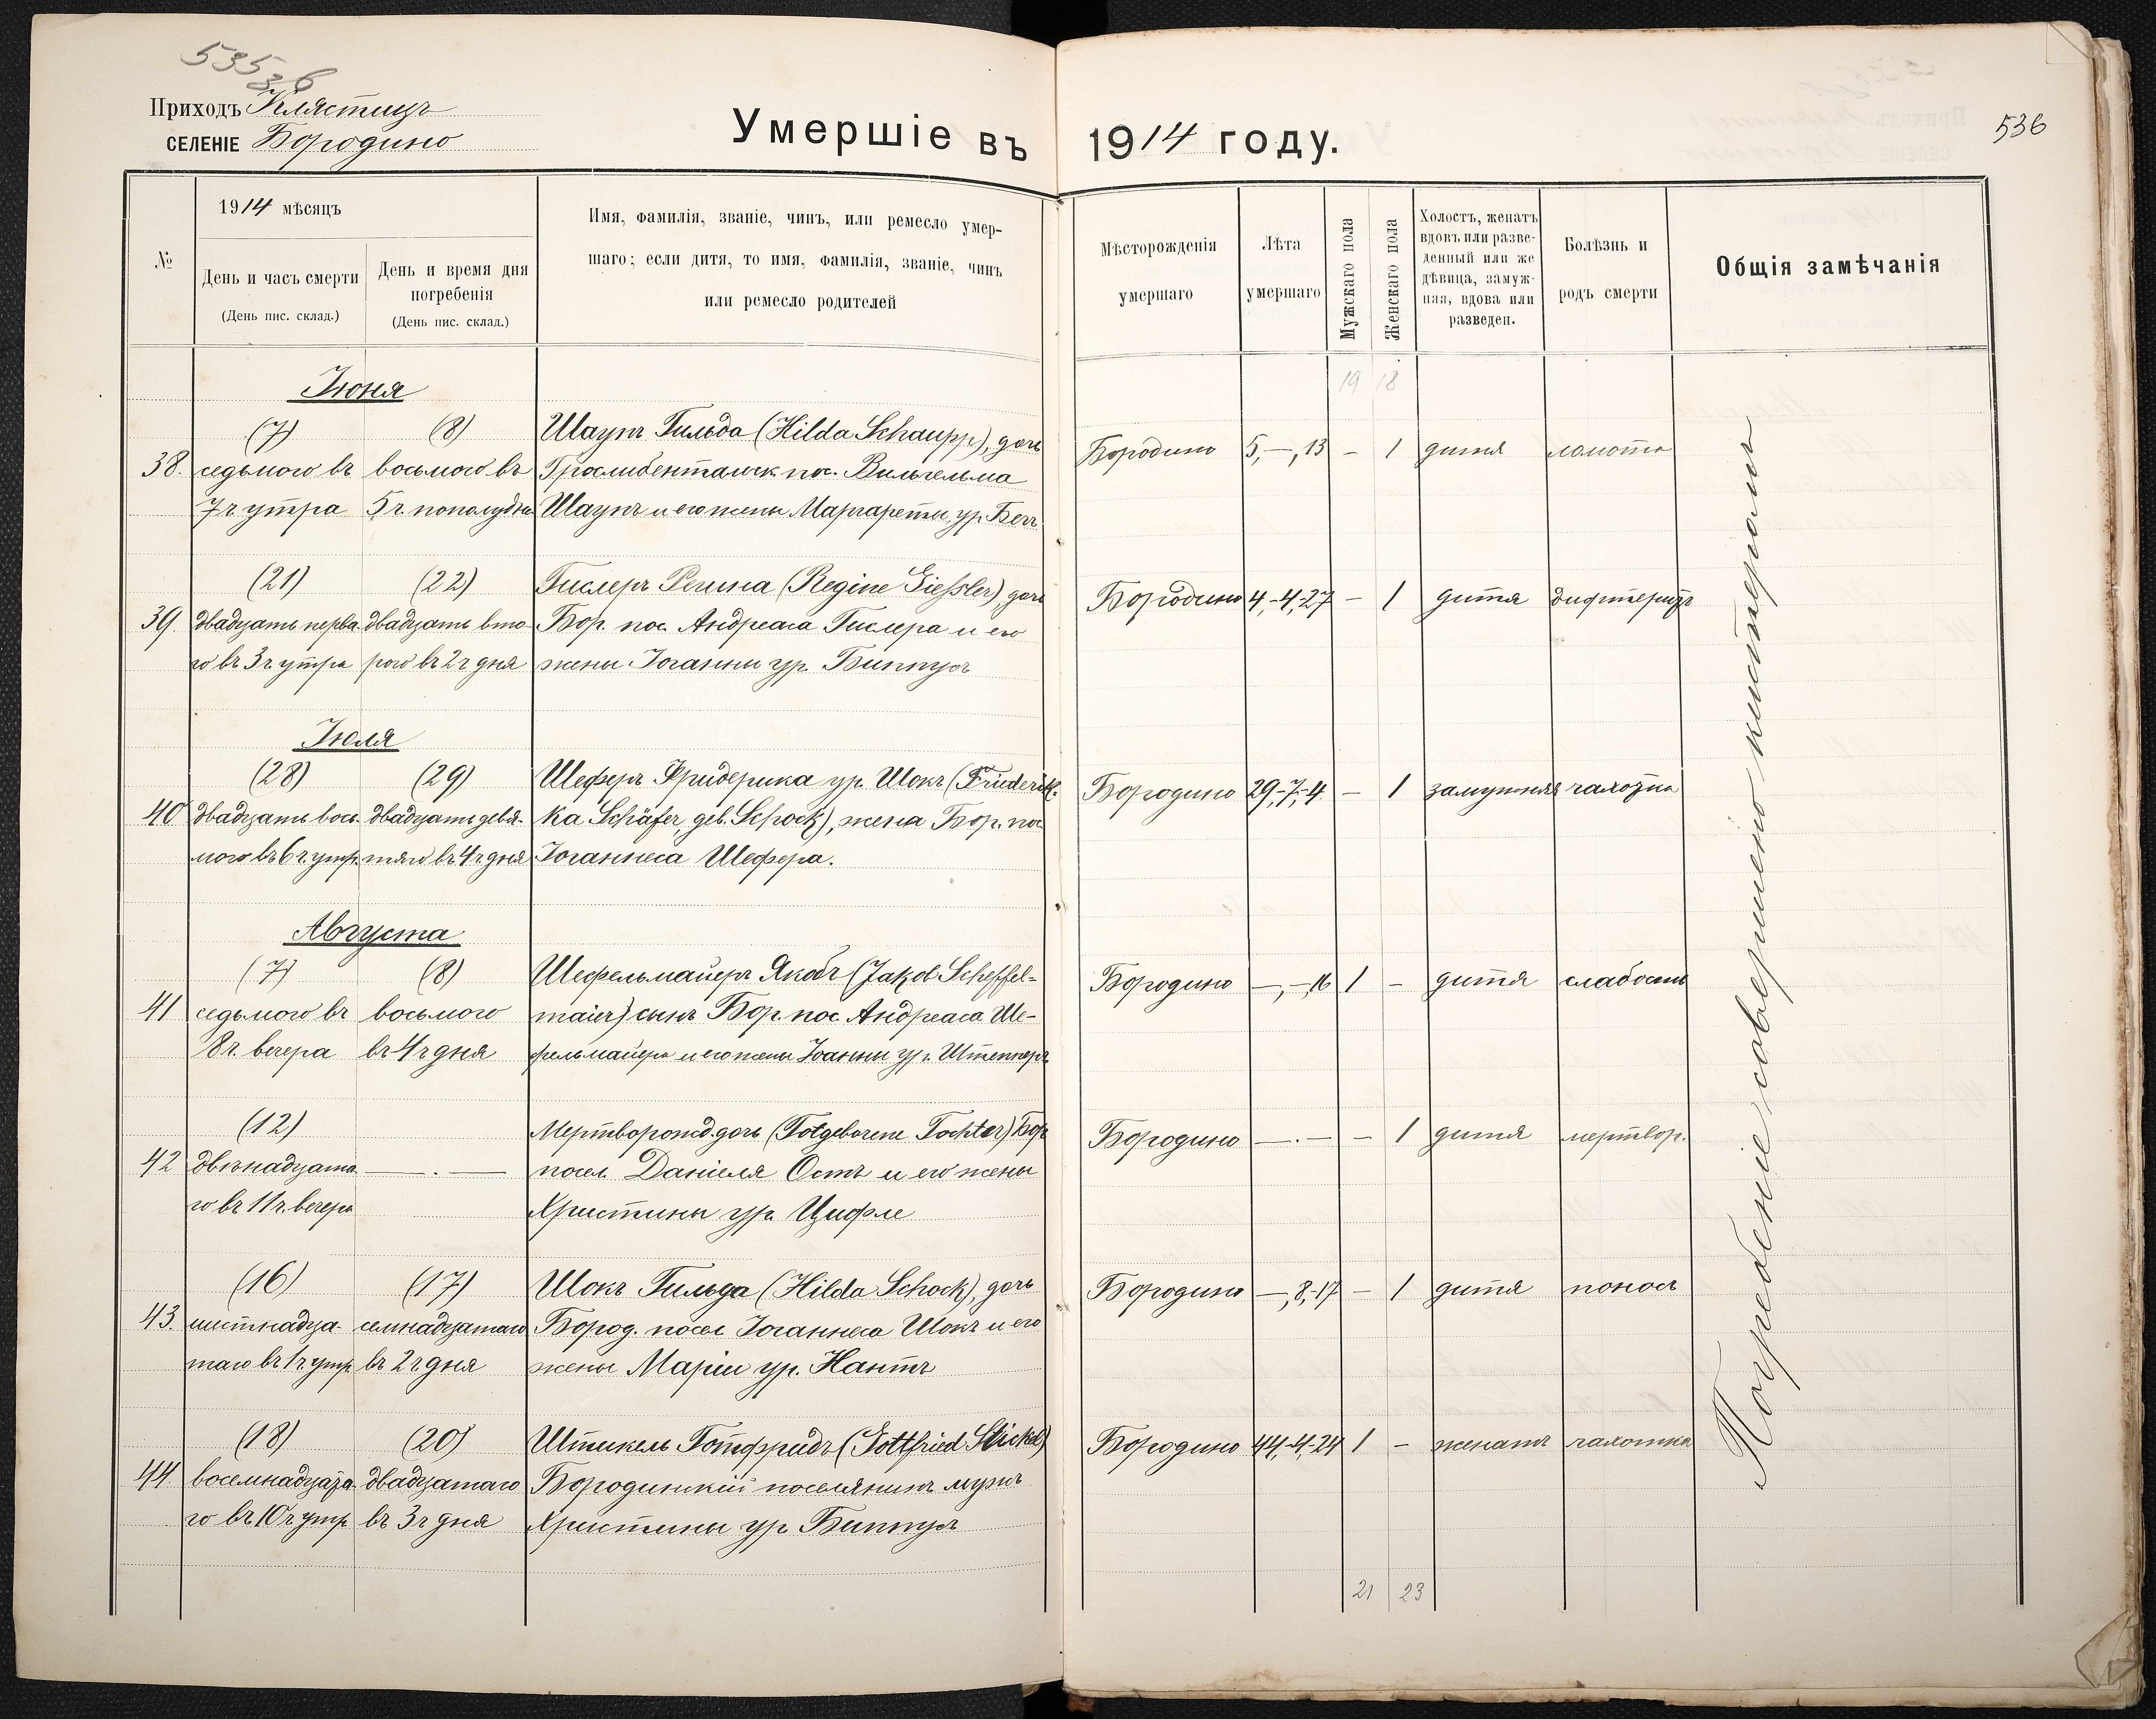 535
36
Приходъ Клястицъ
СЕЛЕНІЕ Бородино
Умершіе въ 1914 году.
536
№
1914 мѣсяцъ
День и часъ смерти
(День пис. склад.)
День и время дня
погребенія
(День пис. склад.)
Имя, фамилія, званіе, чинъ, или ремесло умер-
шаго; если дитя, то имя, фамилія, званіе, чинъ
или ремесло родителей
Мѣсторожденія
умершаго
Лѣта
умершаго
Мужскаго пола
Женскаго пола
Холостъ, женатъ
вдовъ или разве-
денный или же
дѣвица, замуж-
няя, вдова или
разведен.
Болѣзнь и
родъ смерти
Общія замѣчанія
19 18
Іюня
(7) (8) Шаупъ Гильда (Hilda Schaupp), дочь
Бородино 5,-,13 - 1 дитя ломота
38. седьмого въ восьмого въ Гросლибентальск. пос. Вильгельма
7 ч утра 5 ч. пополудни Шаупъ и его жены Маргареты, ур. Бехъ
(21) (22) Гислеръ Регина (Regine Giessler), дочь
Бородино 4,-4,27 - 1 дитя дифтеритъ
39. двадцать перва- двадцать вто- Бор. пос. Андреаса Гислера и его
го въ 3 ч. утра рого въ 2 ч дня жены Іоганны ур. Биппусъ
Іюля
(28) (29) Шеферъ Фридерика ур. Шокъ (Friederik-
Бородино 29,-7,-4 - 1 замужняя чахотка
40 двадцать вось- двадцать девя- ka Schäfer, geb. Schock), жена Бор. пос.
мого въ 6 ч. утр. таго въ 4 ч дня Іоганнеса Шефера.
Августа
(7) (8) Шефельмайеръ Якобъ (Jakob Scheffel-
Бородино -,-,16 1 - дитя слабость
41 седьмого въ восьмого maier) сынъ Бор. пос. Андреаса Ше-
8 ч. вечера въ 4 ч дня фельмайера и его жены Іоанны ур. Штеплеръ
(12) Мертворожд. дочь (Totgeborene Tochter) Бор.
Бородино —.— - 1 дитя мертвор.
42 двѣнадцата- —.— посел. Даніеля Остъ и его жены
го въ 11 ч. вечера Христины ур. Цифле
(16) (17) Шокъ Гильда (Hilda Schock), дочь
Бородино -,8,-17 - 1 дитя поносъ
43. шестнадца- семнадцатаго Бород. посел Іоганнеса Шокъ и его
таго въ 1 ч. утр. въ 2 ч дня жены Маріи ур. Нантъ
(18) (20) Штикель Готфридъ (Gottfried Stickel)
Бородино 44,-4,-24 1 - женатъ чахотка
44. восемнадцата- двадцатаго Бородинскій поселянинъ мужъ
го въ 10 ч утр въ 3 ч дня Христины ур Биппусъ
21 23
Погребеніе совершено кистеромъ